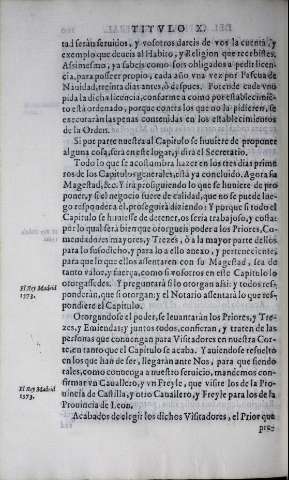 TITVLO X.
tad seràn seruidos, y vosotros dareis de vos la cuenta, y
exemplo que deueis al Habito, y Religion que recebistes.
Assimesmo, ya sabeis como sois obligados a pedir licen-
cia, para posseer propio, cada año vna vez por Pascua de
Nauidad, treinta dias antes, ò despues. Por ende cada vno
pida la dicha licencia, conforme a como por establecimiẽ-
to està ordenado, porque contra los que no la pidieren, se
executaràn las penas contenidas en los establecimientos
de la Orden.
Si por parte nuestra al Capitulo se huuiere de proponer
alguna cosa, serà en este lugar, y dirà el Secretario.
Todo lo que se acostumbra hazer en los tres dias prime
ros de los Capitulos generales, està ya concluido. Agora su
Magestad, &c. Y irà prosiguiendo lo que se huuiere de pro-
poner, y si el negocio fuere de calidad, que no se puede lue-
go responder a èl, proseguirà diziendo: Y porque si todo el
Capitulo se huuiesse de detener, os seria trabajo, y costa:
por lo qual serà bien que otorgueis poder a los Priores, Co-
mendadores mayores, y Trezes, ò a la mayor parte dellos
para lo susodicho, y para lo a ello anexo, y perteneciente,
para que lo que en ellos assentaren con su Magestad, sea de
tanto valor, y fuerça, como si vosotros en este Capitulo lo
otorgassedes. Y preguntarà si lo otorgan assi: y todos res-
ponderàn, que si otorgan; y el Notario assentarà lo que res-
pondiere el Capitulo.
El Rey Madrid
1573.
Otorgandose el poder, se leuantaràn los Priores, y Tre-
zes, y Emiendas; y juntos todos, confieran, y traten de las
personas que conuengan para Visitadores en nuestra Cor-
te, en tanto que el Capitulo se acaba. Y auiendose resuelto
en los que han de ser, llegaràn ante Nos, para que siendo
tales, como conuenga a nuestro seruicio, mandemos con-
firmar vn Cauallero, y vn Freyle, que visite los de la Pro-
uincia de Castilla, y otro Cauallero, y Freyle para los de la
Prouincia de Leon.
El Rey Madrid
1573.
Acabados de elegir los dichos Visitadores, el Prior que
pre-